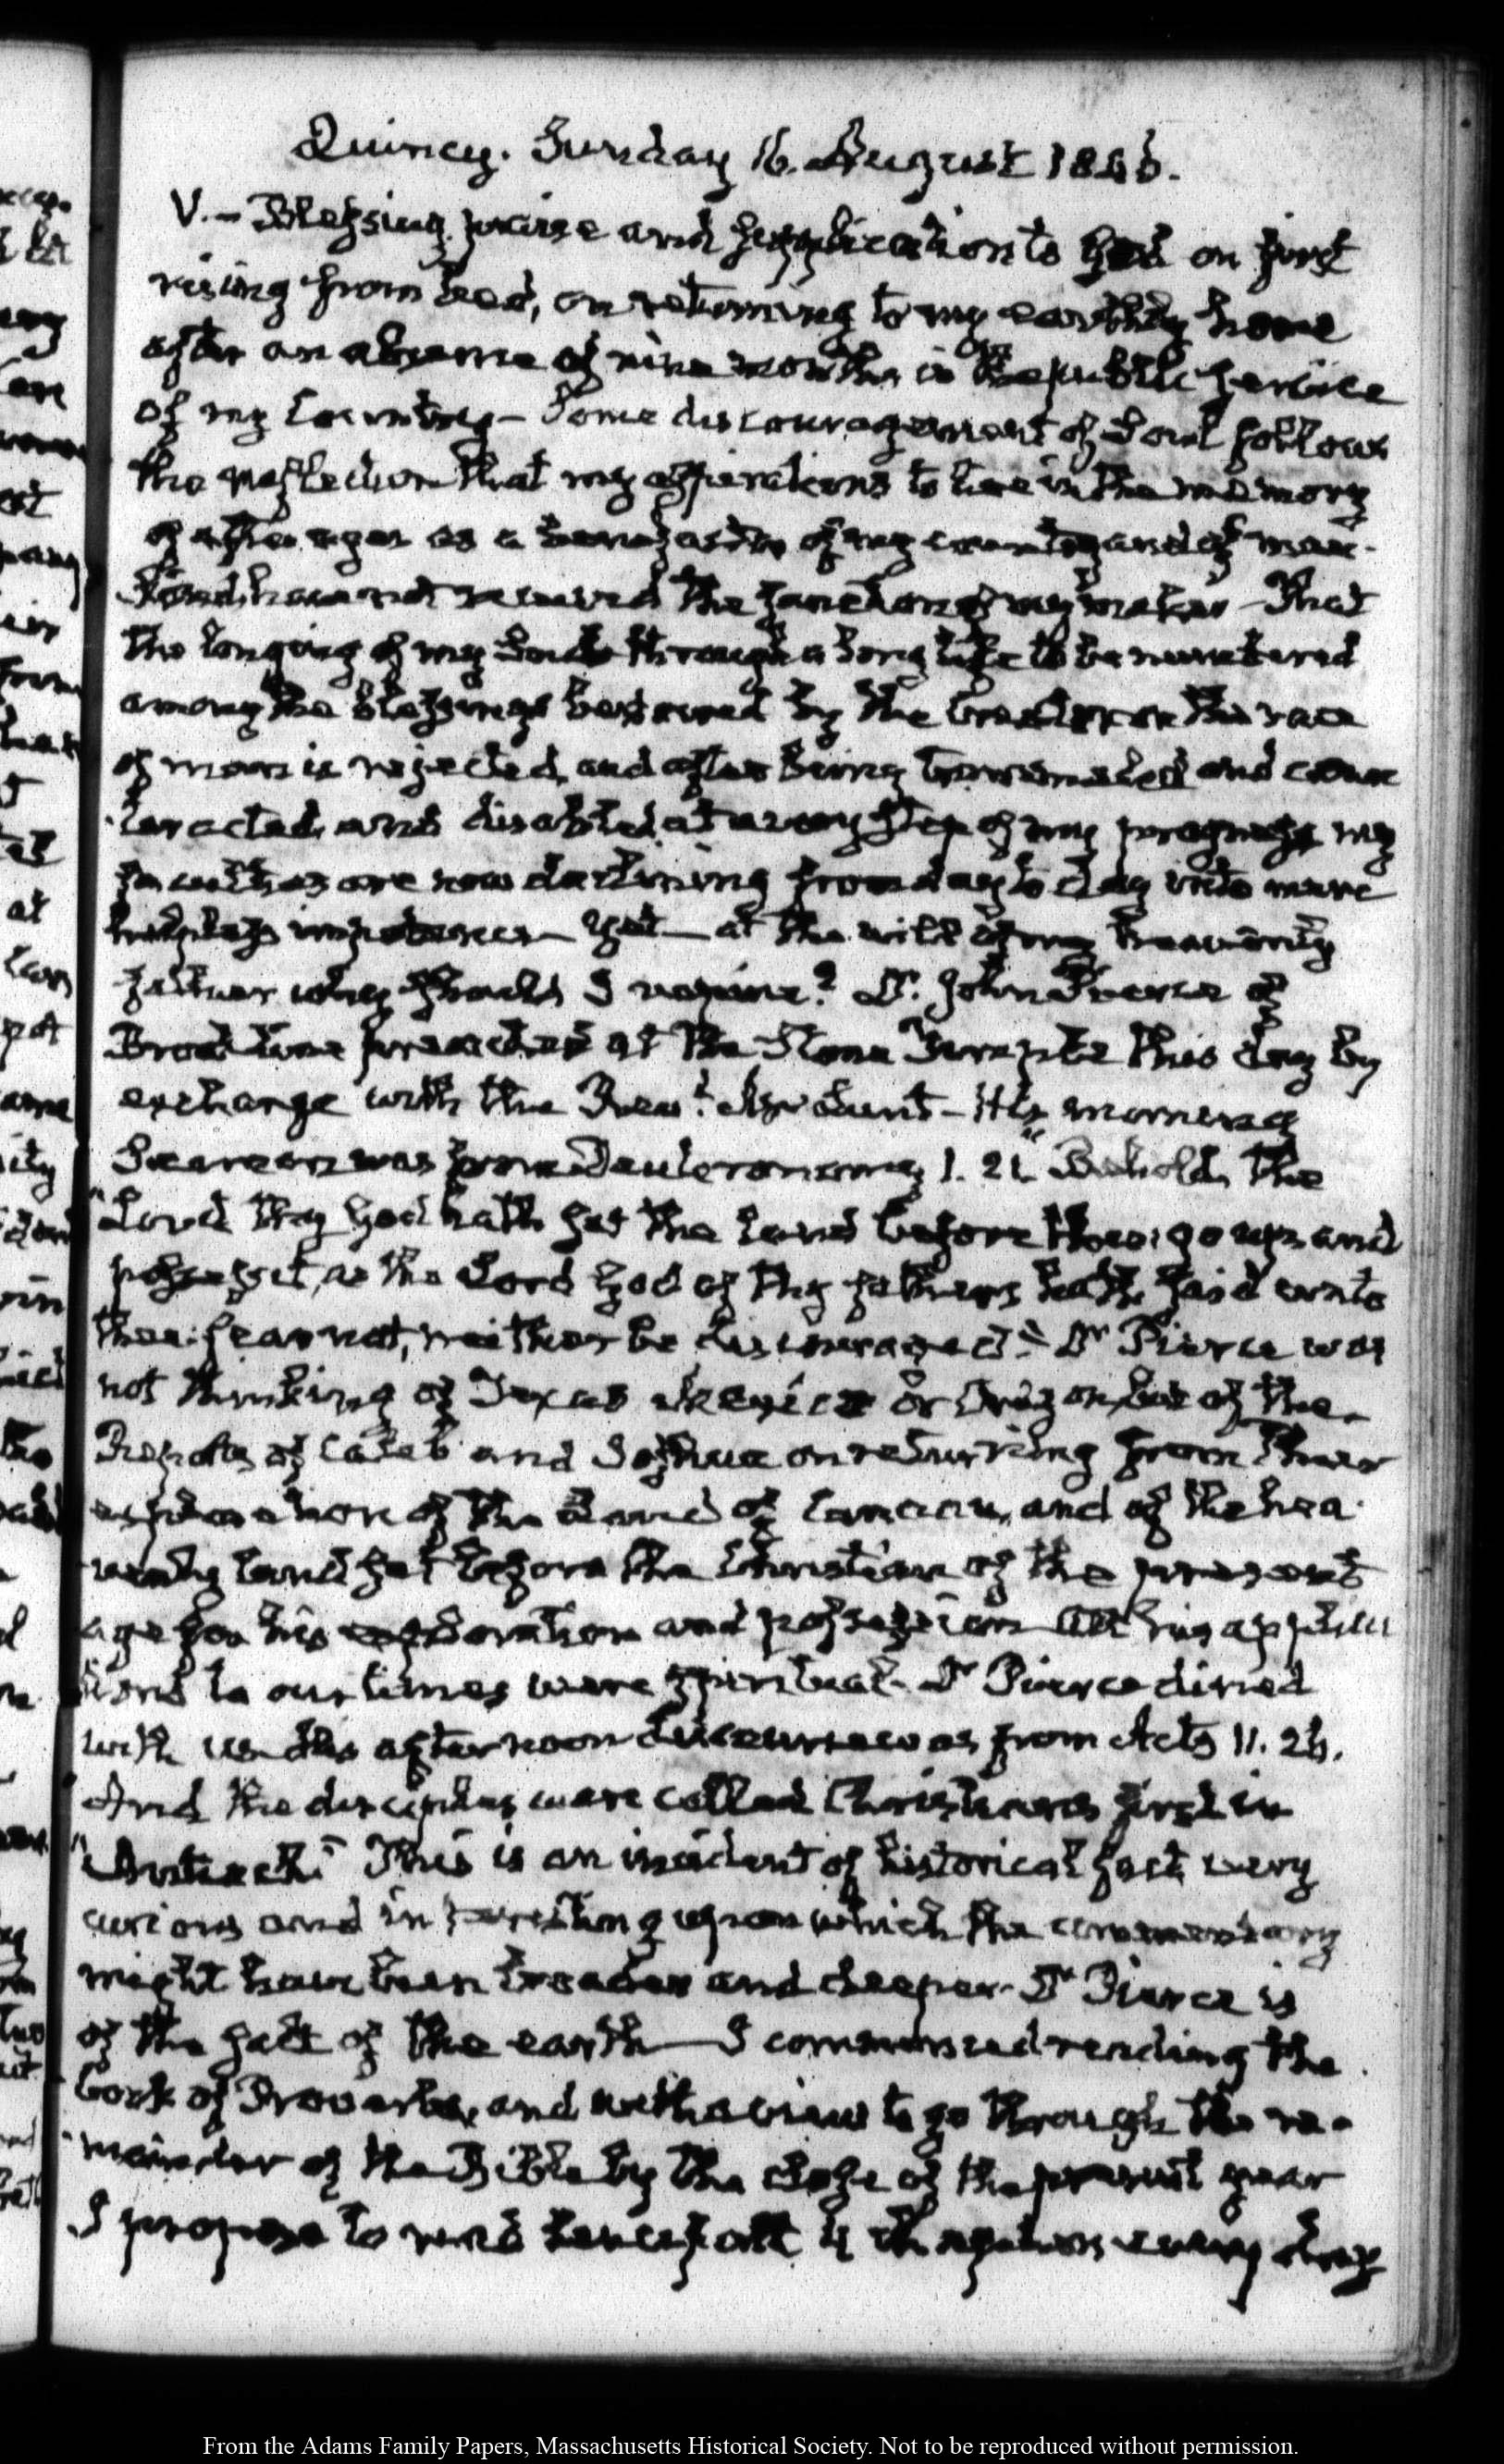 Quincy. Sunday 16. August 1846.
V.— Blessing, praise and supplication to God on first
rising from bed, on returning to my earthly home
after an absence of nine months in the public service
of my Country— Some discouragement of Soul follows
the reflection that my aspirations to live in the memory
of after ages as a benefactor of my country and of man-
kind, have not received the sanction of my maker— That
the longing of my Soul through a long life to be numbered
among the blessings bestowed by the Creator on the race
of man is rejected, and after being trammeled and coun
teracted, and disabled at every step of my progress my
faculties are now declining from day to day into mere
helpless impotence— Yet— at the will of my heavenly
father why should I repine? Dr. John Pierce of
Brookline preached at the Stone Temple this day by
exchange with the Revd. Mr Lunt— His morning
Sermon was from Deuteronomy 1. 21. "Behold, the
"Lord thy God hath set the land before thee: go up, and
possess it, as the Lord God of thy fathers hath said unto
thee: fear not, neither be discouraged." Dr Pierce was
not thinking of Texas Mexico or Oregon, but of the
Reports of Caleb and Joshua on returning from their
exploration of the Land of Canaan, and of the hea
venly land set before the Christian of the present
age for his exploration and possession— All his applica
tions to our times were spiritual. Dr Pierce dined
with us— His afternoon discourse was from Acts 11. 26.
And the disciples were called Christians first in
"Antioch." This is an incident of historical fact, very
curious and interesting upon which the commentary
might have been broader and deeper— Dr Pierce is
of the salt of the earth— I commenced reading the
book of Proverbs, and with a view to go through the re-
mainder of the Bible by the close of the present year
I propose to read henceforth 4 chapters every day